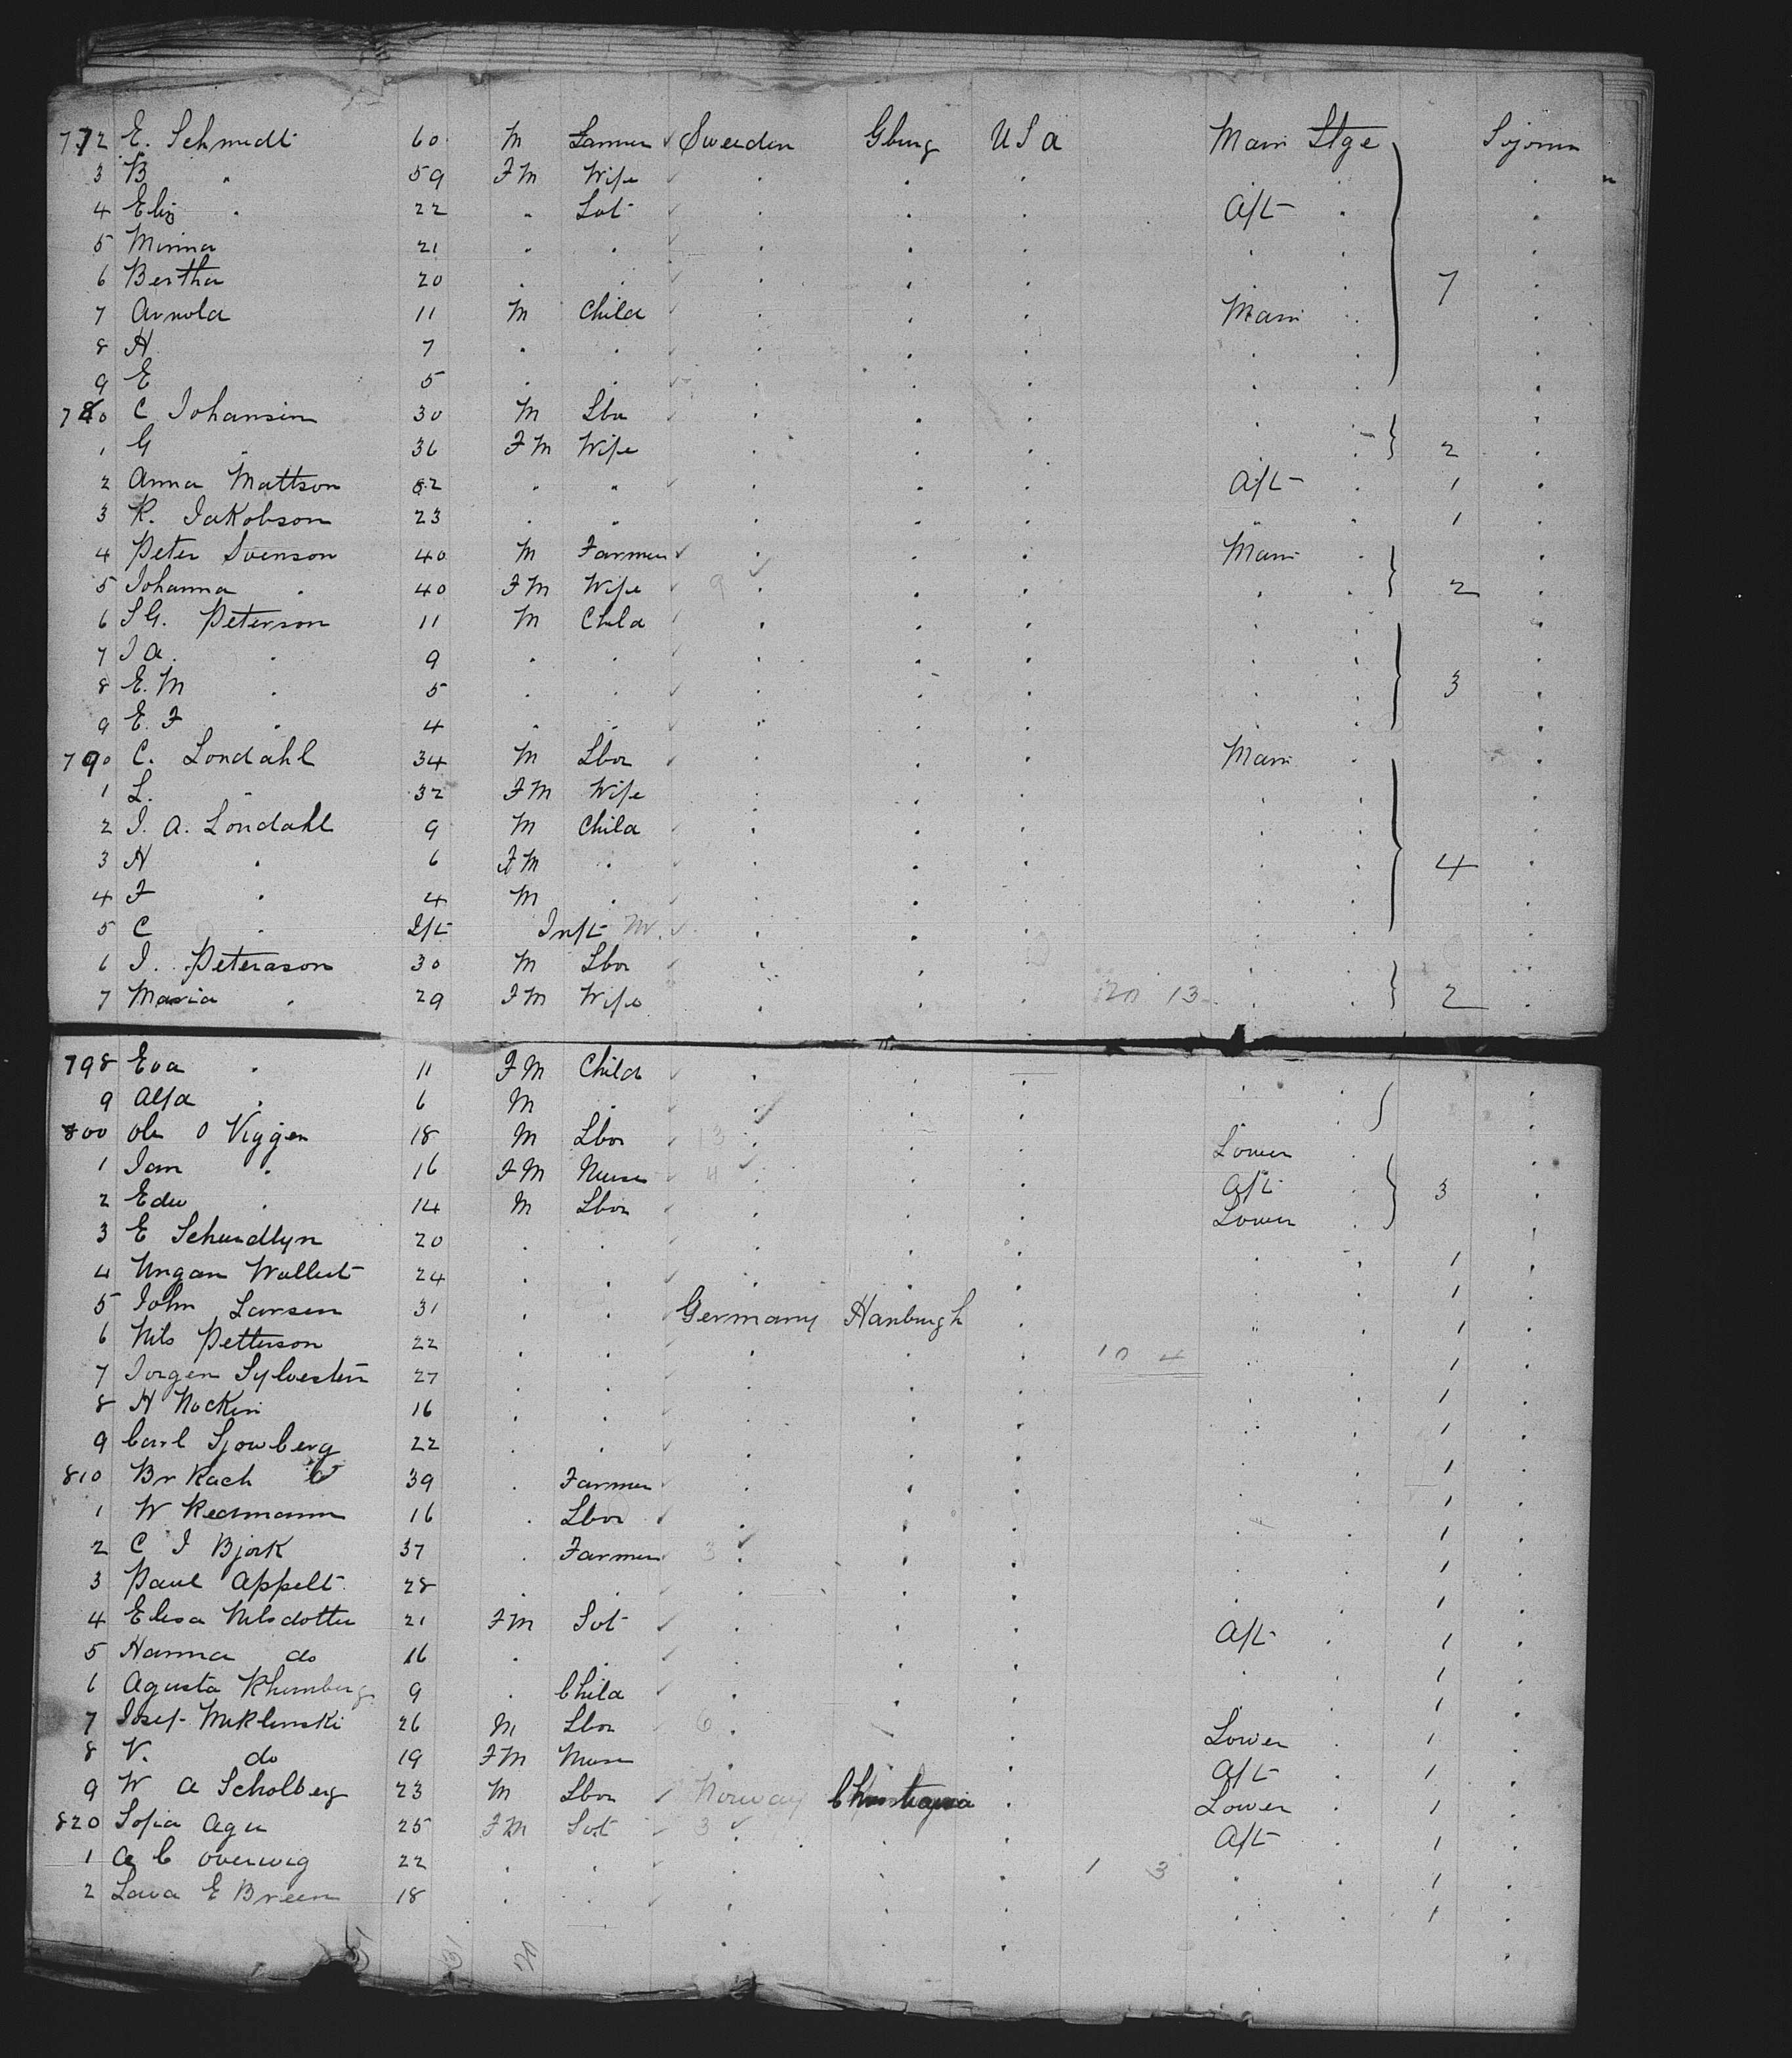 772 E. Schmidt 60 M Farmer Sweeden Gburg U S A Main Stge Sojourn
3 B " 59 FM Wife
4 Eliz " 22 " Sot Aft
5 Minna 21
6 Bertha 20 7
7 Arnold 11 M Child Main
8 H 7
9 E 5
780 C Johansin 30 M Lbr
1 G " 36 FM Wife 2
2 Anna Mattson 82 " " Aft 1
3 K. Jakobson 23 " 1
4 Peter Svenson 40 M Farmer Main
5 Johanna " 40 FM Wife 9 2
6 S G. Peterson 11 M Child
7 J A. " 9
8 E. M " 5 3
9 E. F " 4
790 C. Londahl 34 M Lbor Main
1 L. " 32 FM Wife
2 J. A. Londahl 9 M Child
3 H " 6 FM 4
4 F " 4 M
5 C " Ift Inft M
6 J. Peterason 30 M Lbor
7 Maria " 29 FM Wife 20 13 2
798 Eva " 11 FM Child
9 Alfa " 6 M
800 Ole O Viggen 18 M Lbor 13 Lower
1 Jan " 16 FM Nurse 4 Aft 3
2 Edw " 14 M Lbor Lower
3 E Schundlyn 20 1
4 Ungan Wallert 24 1
5 John Larsen 31 Germany Hanburgh 1
6 Nils Petterson 22 10 4 1
7 Jorgen Sylvestin 27 1
8 H Nockin 16 1
9 Carl Sjowberg 22 1
810 Br Kach 39 Farmer 1
1 W Redmann 16 Lbor 1
2 C J Bjork 37 Farmer 3 1
3 Paul Appelt 28 1
4 Elisa Nilsdotter 21 FM Sot Aft 1
5 Hanna do 16 1
6 Agusta Khemberg 9 Child 1
7 Josef Miklinski 26 M Lbor 6 Lower 1
8 V. do 19 FM Nurse Aft 1
9 W A Scholberg 23 M Lbor Norway Christiania Lower 1
820 Sofia Agu 25 FM Sot 3 Aft 1
1 A C Overweg 22 1 3 1
2 Lava E Breen 18 1